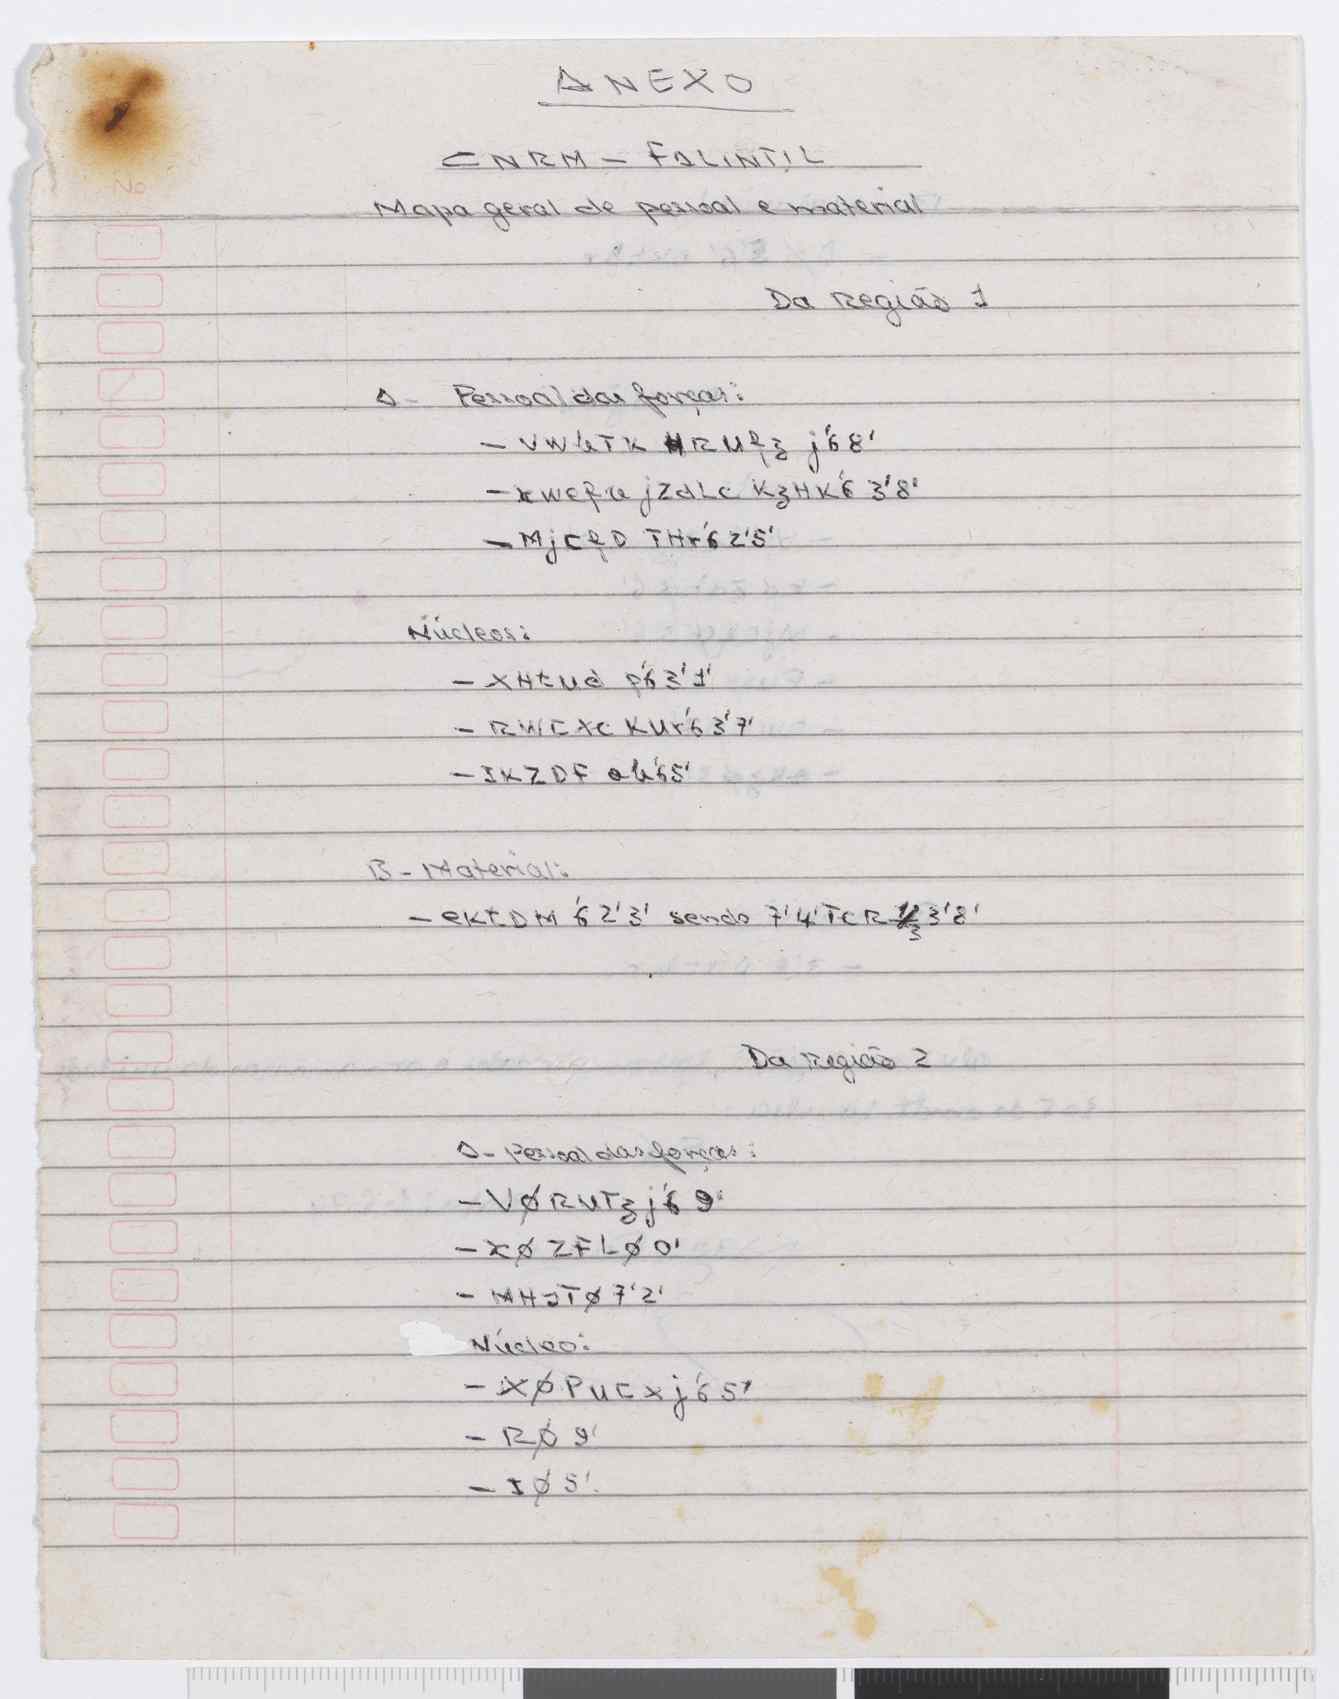 ANEXO
CNRM - FALINTIL
Mapa geral de pessoal e material
Da Região 1
A - Pessoal das forças:
- j'68'
- KzHK'6 3'8'
- THr'6 2'5'
Núcleos:
- XHtUd 3'1'
- KUr'6 3'7'
- IKZDF
B - Material:
- eKtDM '6 2'3' sendo 7'4' TCR 3'8'
Da Região 2
A - Pessoal das forças:
- VØRUTz j'6 9'
- XØZFLØ 0'
- MHJTØ 7'2'
Núcleo:
- XØPUCX j'6 5'
- RØ 9'
- IØ 5'